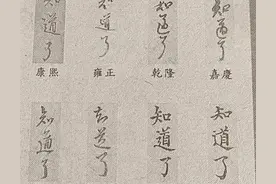 知道了 知道了 知道了 知道了
康熙 雍正 乾隆 嘉慶
知道了 知道了 知道了 知道了